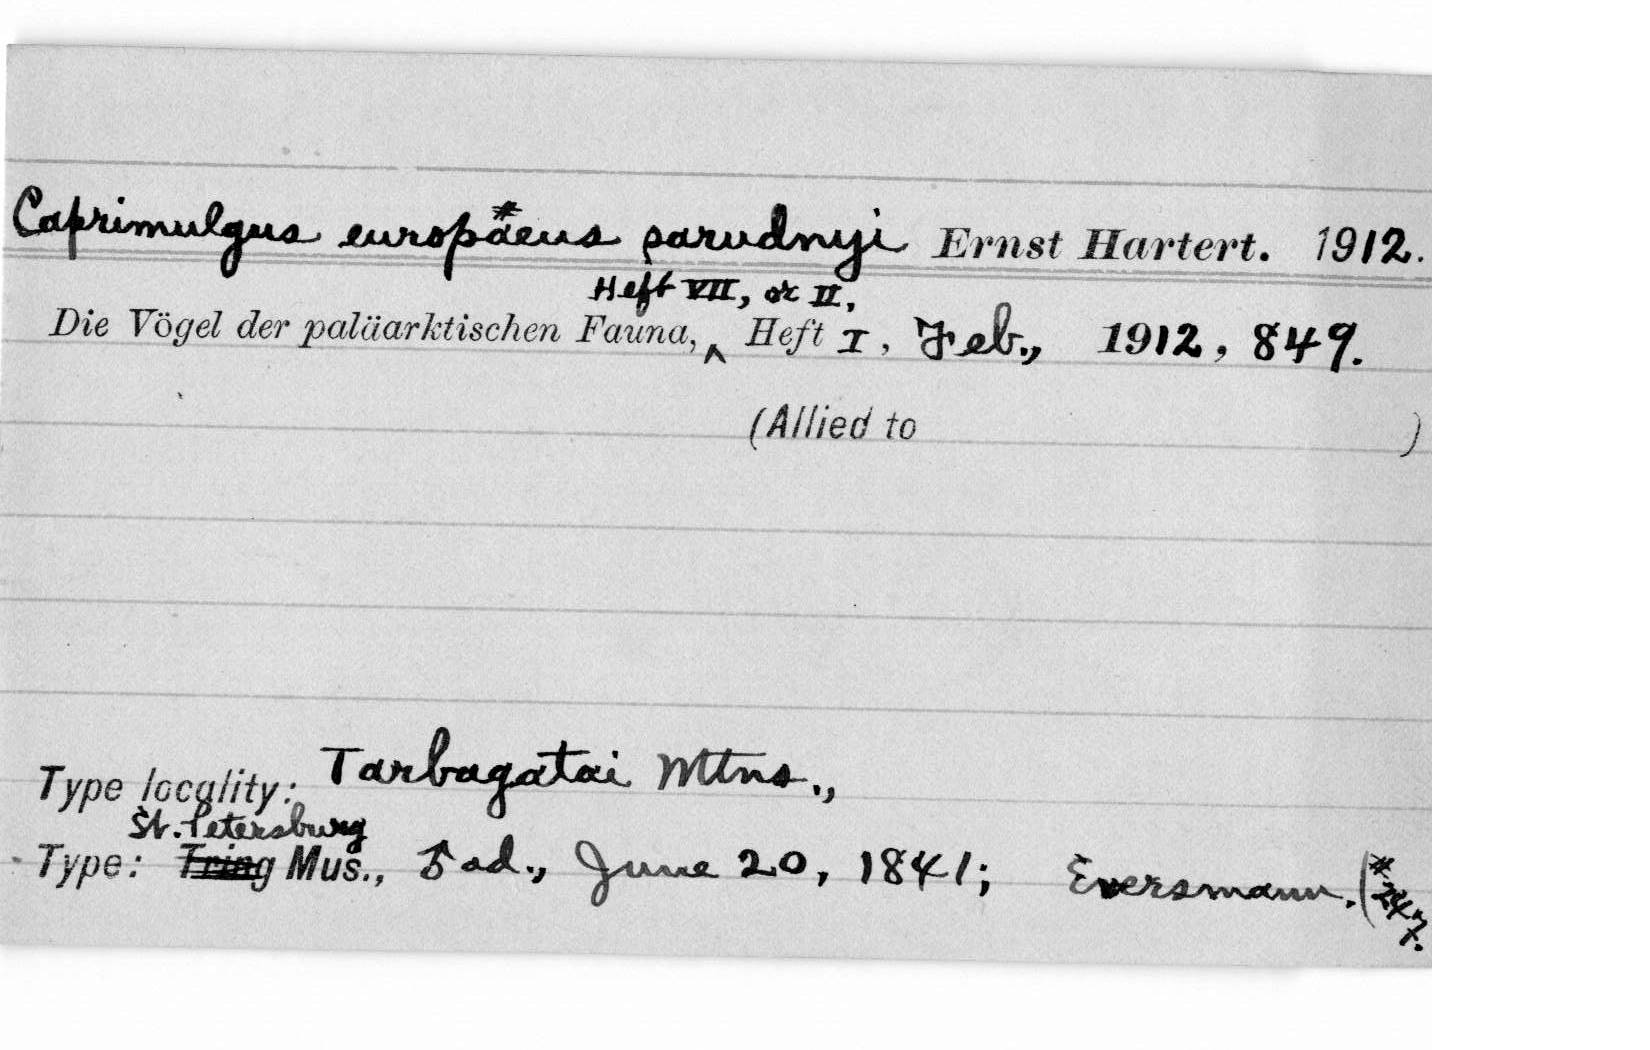 Caprimulgus europaeus sarudnyi Ernst Hartert. 1912.
Heft VII, or II,
Die Vögel der paläarktischen Fauna, ‸ Heft I, Feb., 1912, 849.
(Allied to )
Type locality: Tarbagatai Mtns.,
St. Petersburg
Type: Tring Mus., ♂ ad., June 20, 1841; Eversmann. (#247.